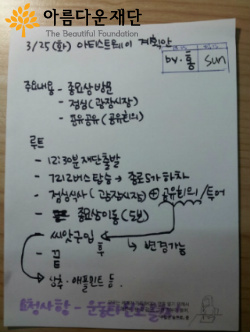 아름다운재단
The Beautiful Foundation
3/25(화) 아티스트웨이 계획안
by. 홍 sun
주요내용 - 종묘상방문
- 점심(광장시장)
- 공유(공유회의)
루트
- 12:30분 재단출발
- 7212버스탑승 → 종로5가 하차
- 점심식사(광장시장) + 공유회의/투어
- 종묘상이동(도보)
씨앗구입 후 변경가능
- 끝
상추·애플민트 등.
요청사항 - 운동화